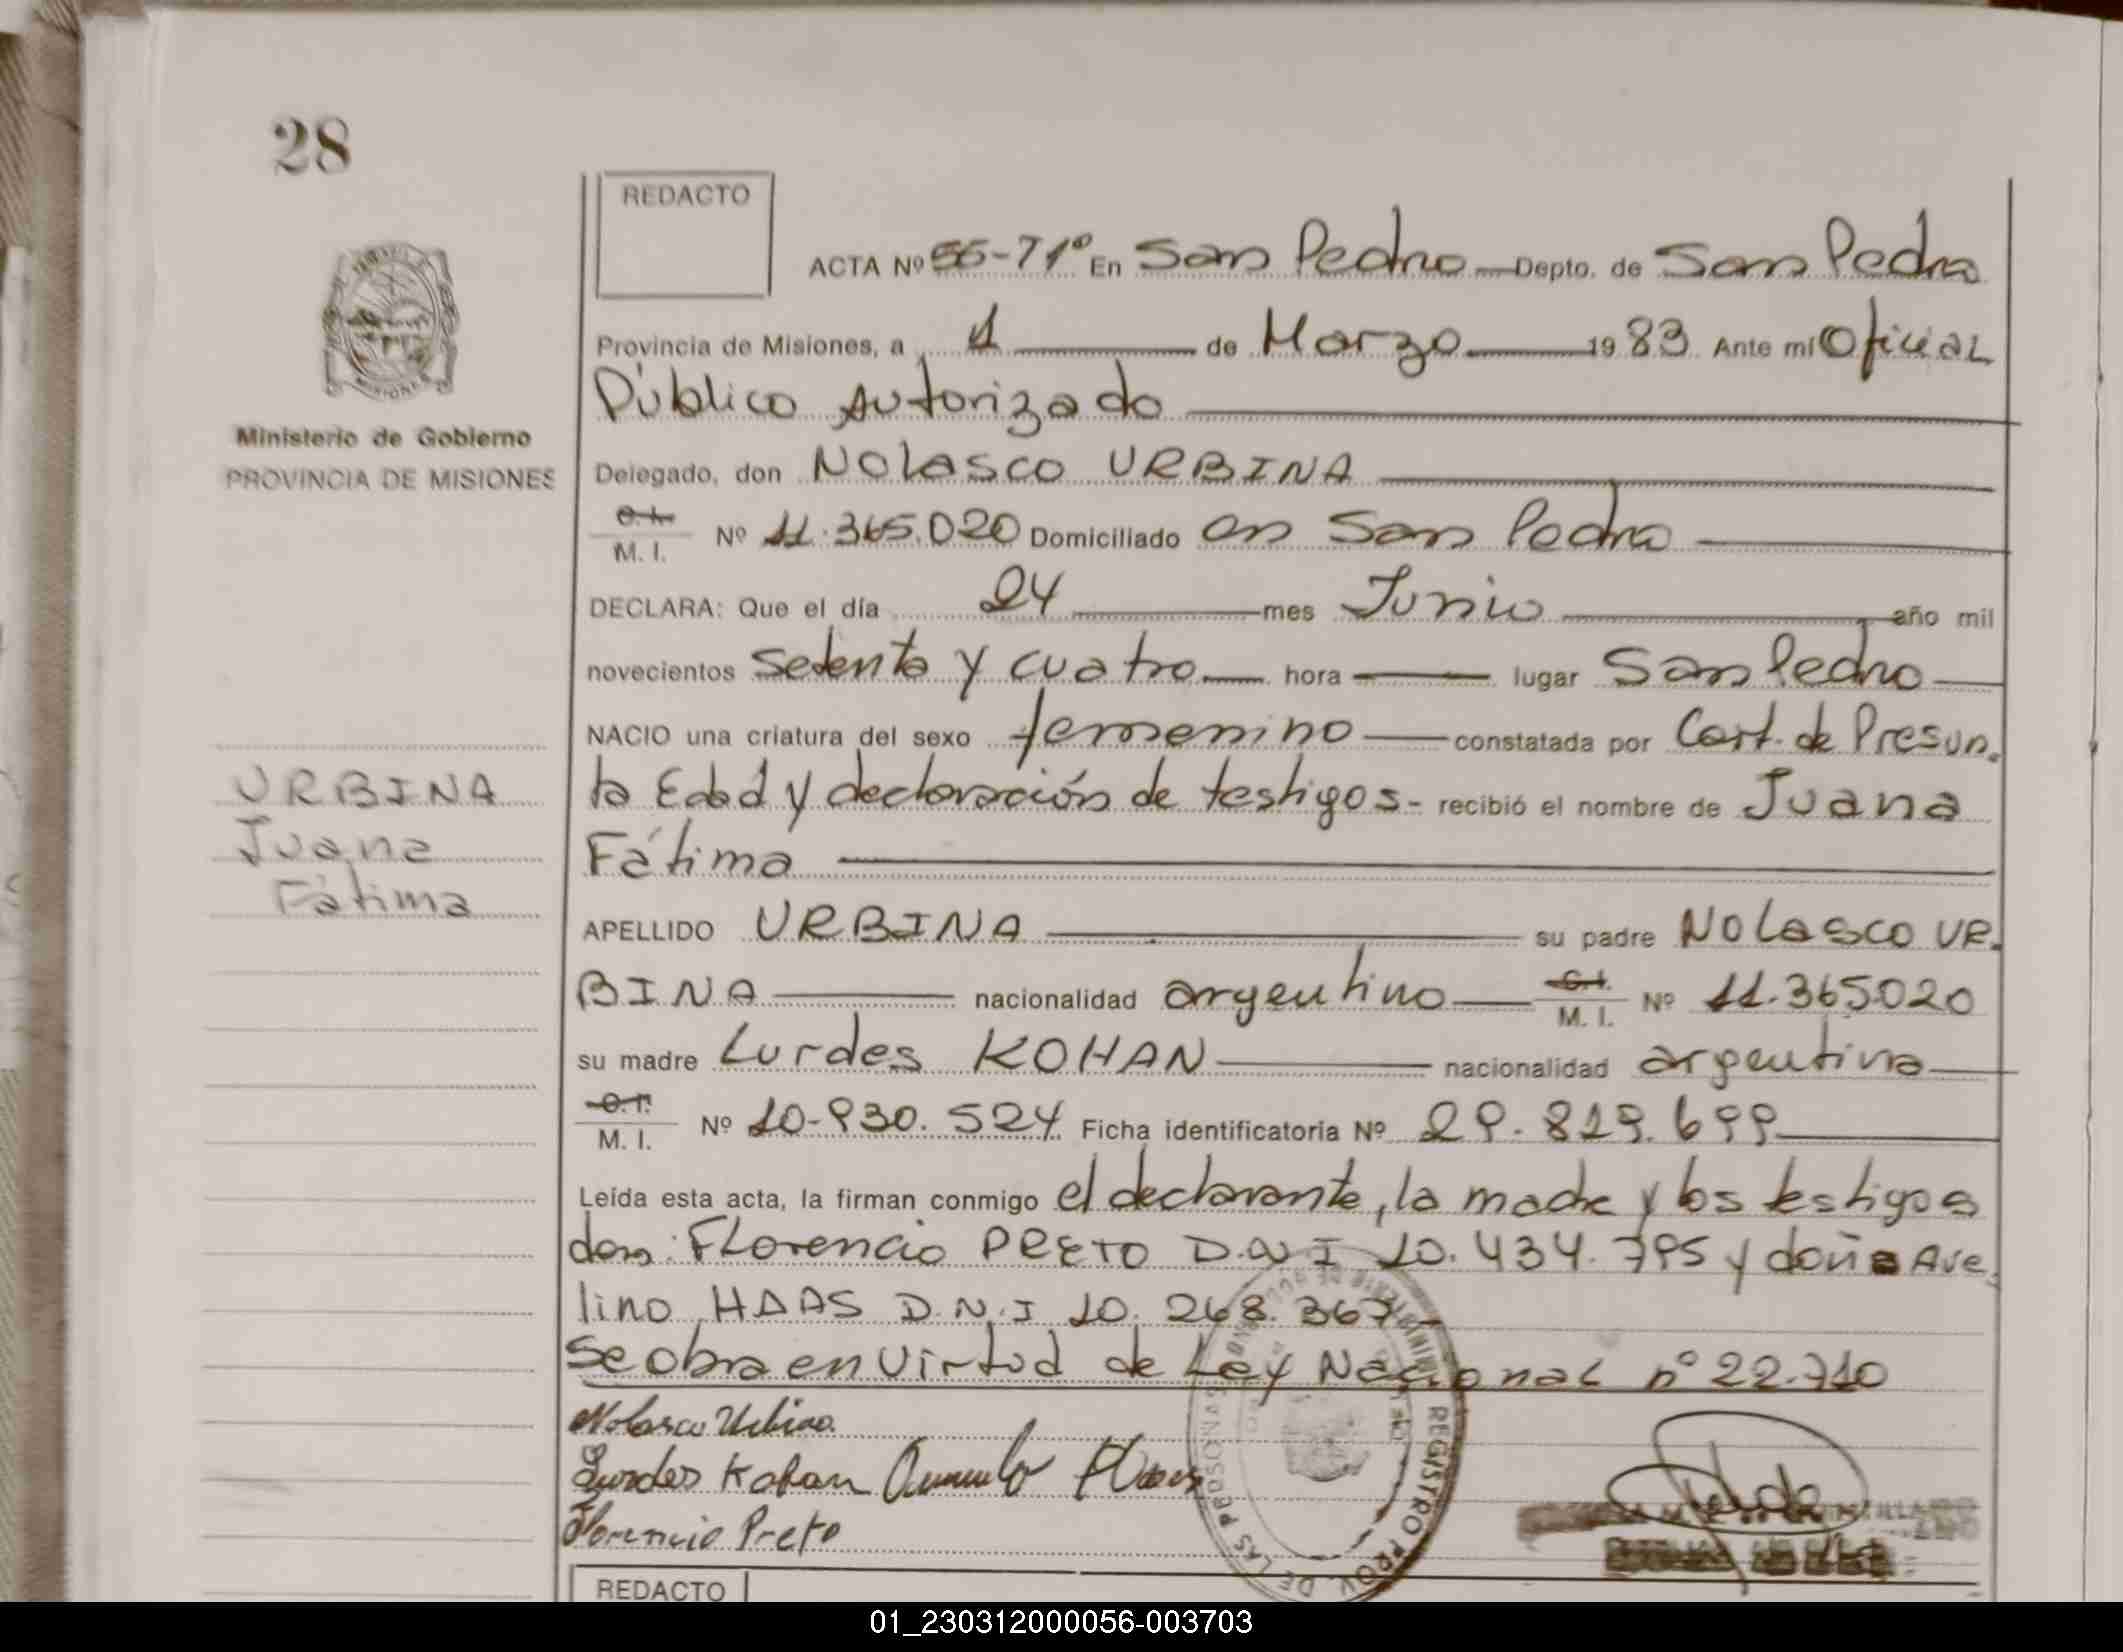 28
REDACTO
ACTA Nº 55-71º En San Pedro Depto. de San Pedro
Provincia de Misiones, a 1 de Marzo 1983 Ante mi Oficial
Público Autorizado
Ministerio de Gobierno
PROVINCIA DE MISIONES
Delegado, don Nolasco URBINA
C.I.
M. I. Nº 11.365.020 Domiciliado en San Pedro
DECLARA: Que el día 24 mes Junio año mil
novecientos setenta y cuatro hora lugar San Pedro
NACIO una criatura del sexo femenino constatada por Cert. de Presun.
URBINA
Juana
Fátima
ta Edad y declaración de testigos- recibió el nombre de Juana
Fátima
APELLIDO URBINA su padre Nolasco UR.
BINA nacionalidad argentino C.I.
M. I. Nº 11.365020
su madre Lurdes KOHAN nacionalidad argentina
C.I.
M. I. Nº 10-930.524 Ficha identificatoria Nº 29.819.699
Leída esta acta, la firman conmigo el declarante, la madre y los testigos
don: Florencio PRETO D.N.I 10.434.795 y doña Ave.
lino HAAS D.N.I 10.268.367-
Se obra en virtud de Ley Nacional nº 22.710
Nolasco Urbina
Lurdes Kohan
Florencio Preto
REGISTRO PROV. DE LAS PERSONAS
REDACTO
01_230312000056-003703